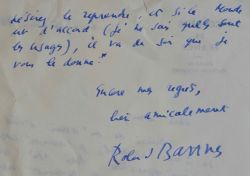 désirez le reprendre, et si le Monde
est d'accord (je ne sais quels sont
les usages), il va de soi que je
vous le donne."
Encore mes regrets,
bien amicalement
Roland Barthes